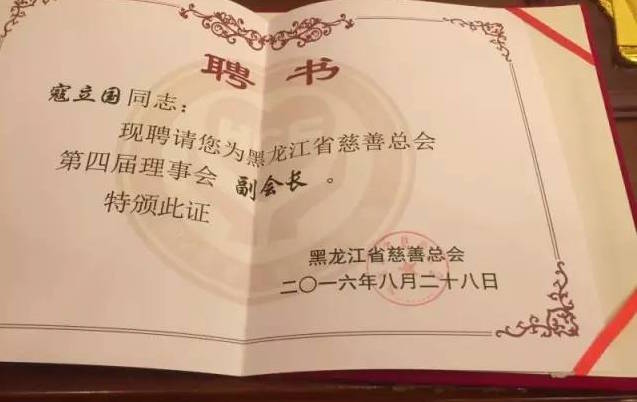 聘书
寇立国同志：
现聘请您为黑龙江省慈善总会
第四届理事会 副会长。
特颁此证
黑龙江省慈善总会
二〇一六年八月二十八日